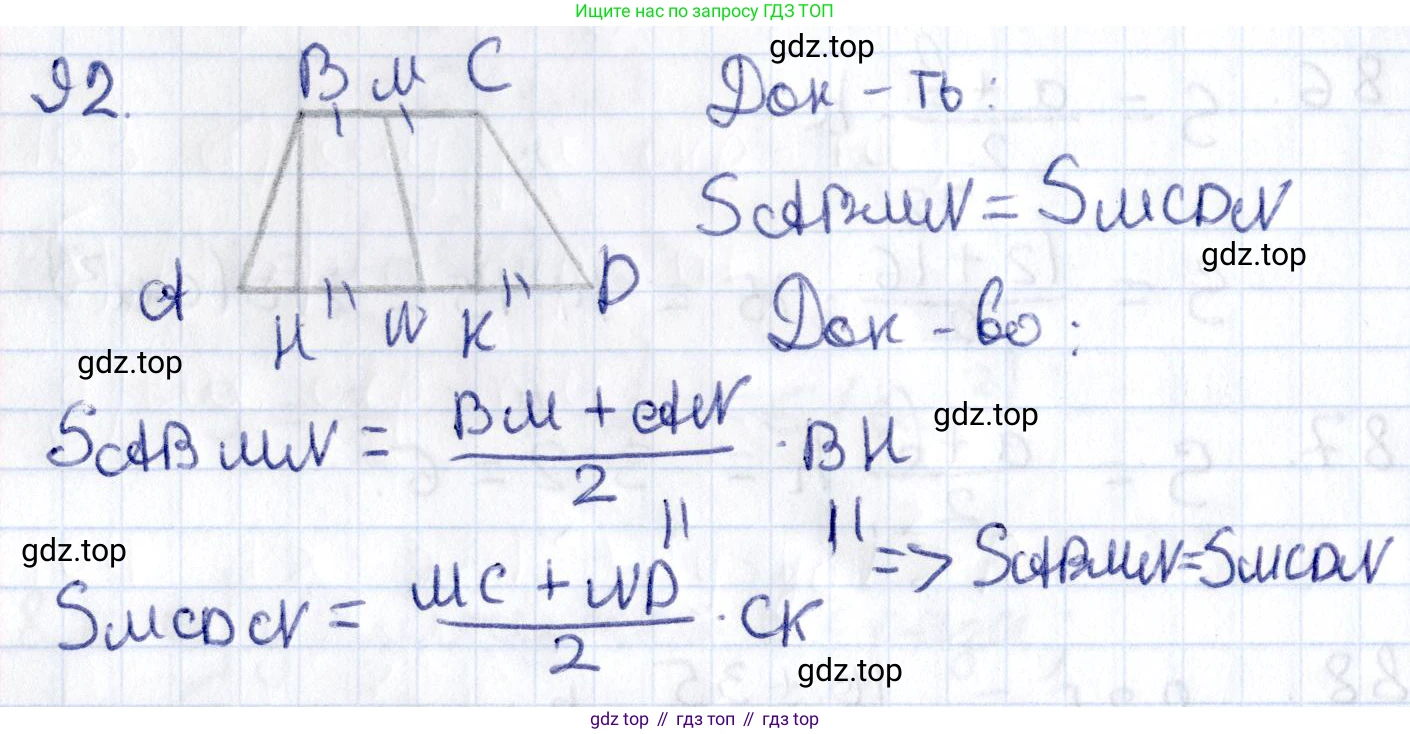 Ищите нас по запросу ГДЗ ТОП
gdz.top
92.
B M C
Док-ть:
SABMN = SMCDN
gdz.top
A H N K D
Док-во:
gdz.top
SABMN = (BM + AN)/2 · BH
gdz.top
gdz.top
SMCDN = (MC + ND)/2 · CK
=> SABMN = SMCDN
gdz.top
gdz top // гдз топ // gdz top